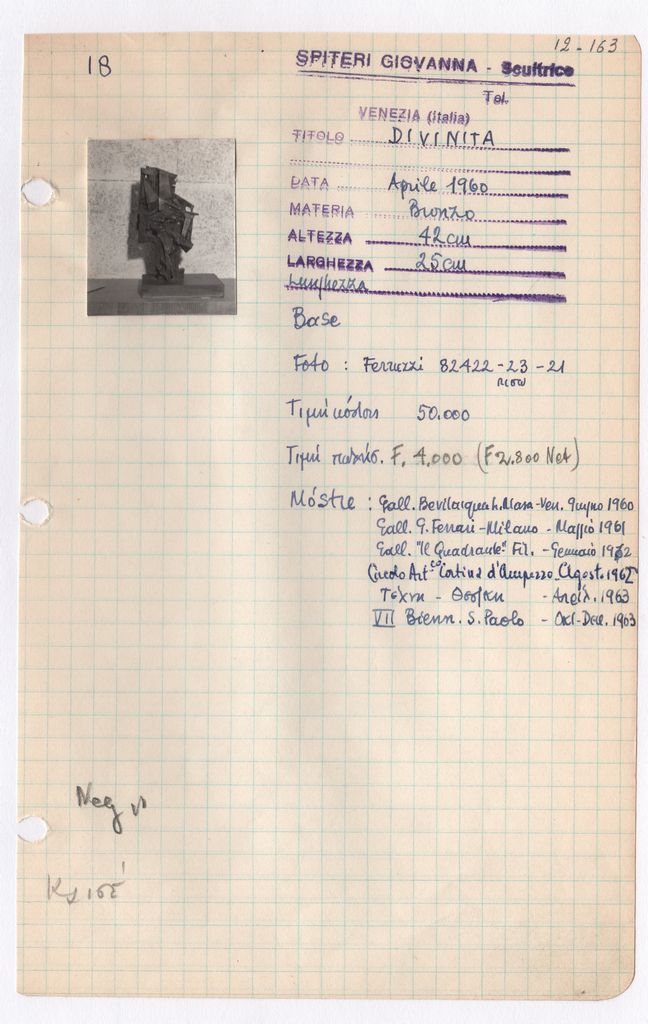 12-163
18
SPITERI GIOVANNA - Scultrice
Tel.
VENEZIA (Italia)
TITOLO DIVINITA
DATA Aprile 1960
MATERIA Bronzo
ALTEZZA 42cm
LARGHEZZA 25cm
Lunghezza
Base
Foto : Ferruzzi 82422-23-21
πισω
Τιμή κόστου 50.000
Τιμή F. 4.000 (F 2.800 Net)
Móstre : Gall. Bevilacqua L. Masa-Ven. Giugno 1960
Gall. G. Ferrari-Milano - Maggio 1961
Gall. "Il Quadrante" Fir. - Gennaio 1962
Circolo Art.co Cortina d'Ampezzo. Agost. 1962
Τέχνη - Θεσ/κη - Απρίλ. 1963
VII Bienn. S. Paolo - Okt-Dec. 1963
Neg